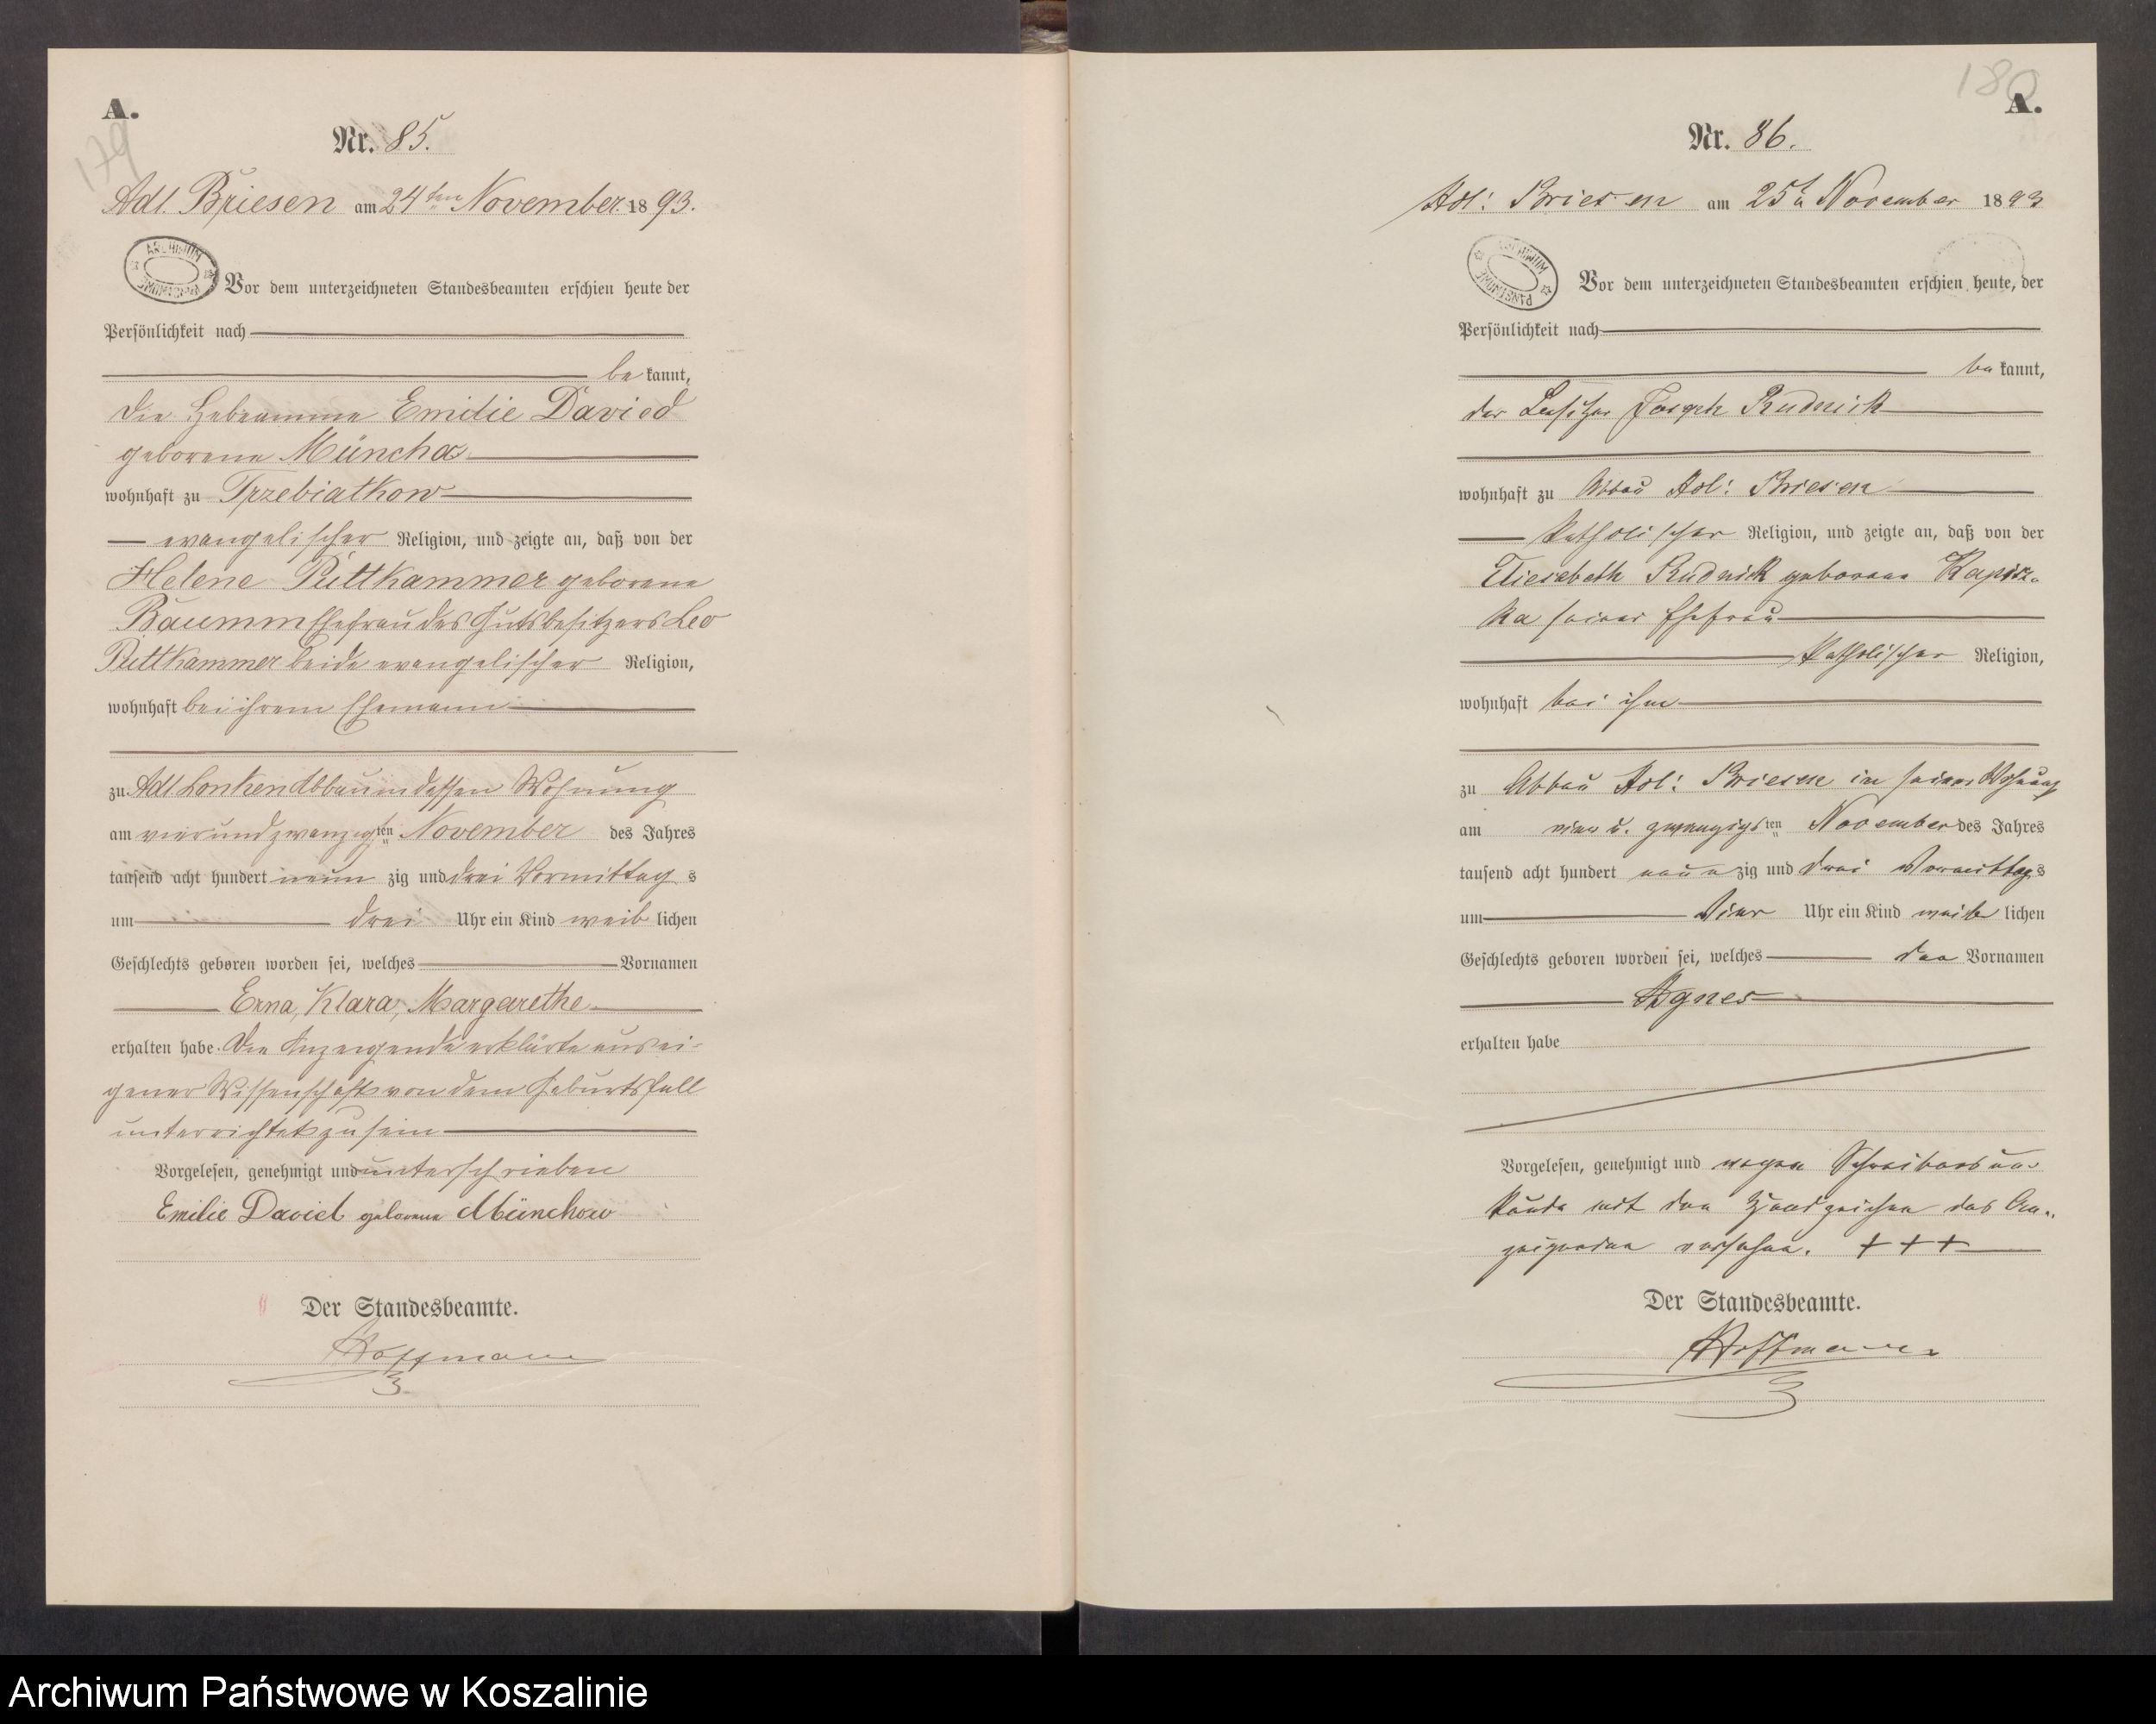 A.
179
Nr. 85.
Adl. Briesen am 24ten November 1893.
ARCHIWUM PAŃSTWOWE
Vor dem unterzeichneten Standesbeamten erschien heute der
Persönlichkeit nach
be kannt,
die Hebeamme Emilie David
geborene Münchow
wohnhaft zu Trzebiatkow
evangelischer Religion, und zeigte an, daß von der
Helene Puttkammer geborene
Baumm Ehefrau des Gutsbesitzers Leo
Puttkammer beide evangelischer Religion,
wohnhaft bei ihrem Ehemann
zu Adl Lonken Abbau in dessen Wohnung
am vierundzwanzigten November des Jahres
tausend acht hundert neun zig und drei Vormittag s
um drei Uhr ein Kind weib lichen
Geschlechts geboren worden sei, welches Vornamen
Erna, Klara, Margarethe
erhalten habe. Die Anzeigende erklärte aus ei-
gener Wissenschaft von dem Geburtsfall
unterrichtet zu sein
Vorgelesen, genehmigt und unterschrieben
Emilie David geborene Münchow
Der Standesbeamte.
Hoffmann
180
A.
Nr. 86.
Adl: Briesen am 25t November 1893
ARCHIWUM PAŃSTWOWE
Vor dem unterzeichneten Standesbeamten erschien heute, der
Persönlichkeit nach
be kannt,
der Besitzer Joseph Rudnick
wohnhaft zu Abbau Adl: Briesen
katholischer Religion, und zeigte an, daß von der
Elisabeth Rudnick geborene
ka seiner Ehefrau
katholischer Religion,
wohnhaft bei ihm
zu Abbau Adl: Briesen in seiner Wohnung
am vier u. zwanzigsten November des Jahres
tausend acht hundert neun zig und drei Vormittags
um Vier Uhr ein Kind weib lichen
Geschlechts geboren worden sei, welches den Vornamen
Agnes
erhalten habe
Vorgelesen, genehmigt und wegen Schreibensun-
kunde mit den Handzeichen des An-
zeigenden versehen. + + +
Der Standesbeamte.
Hoffmann
Archiwum Państwowe w Koszalinie